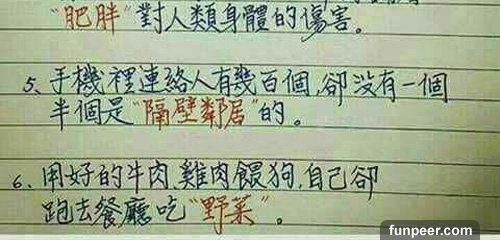 "肥胖"對人類身體的傷害。
5、手機裡連絡人有幾百個,卻没有一個
半個是"隔壁鄰居"的。
6、用好的牛肉,雞肉餵狗,自己卻
跑去餐廳吃"野菜"。
funpeer.com